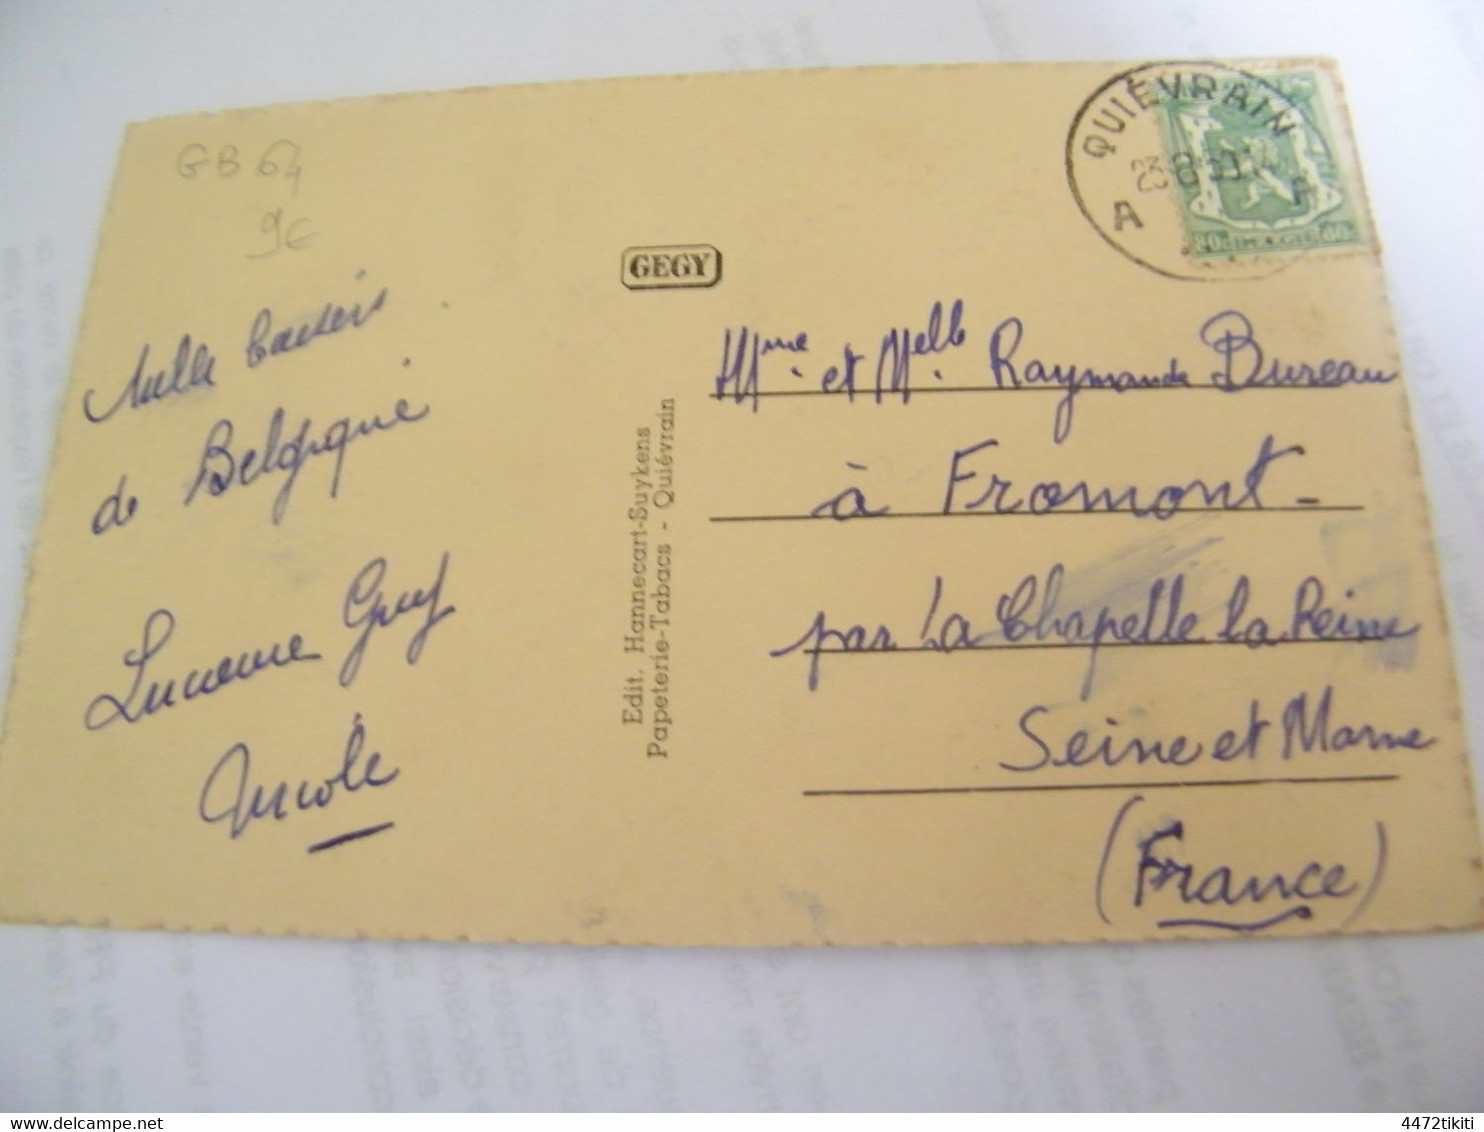 GB 64
9€
Mille baisers
de Belgique
Lucienne Guy
Nicole
GEGY
Edit. Hannecart-Suykens
Papeterie-Tabacs - Quiévrain
QUIÉVRAIN
23 8
A A
80c BELGIE 80c
Mme et Melle Raymonde Bureau
à Fromont -
par La Chapelle la Reine
Seine et Marne
(France)
4472tikiti